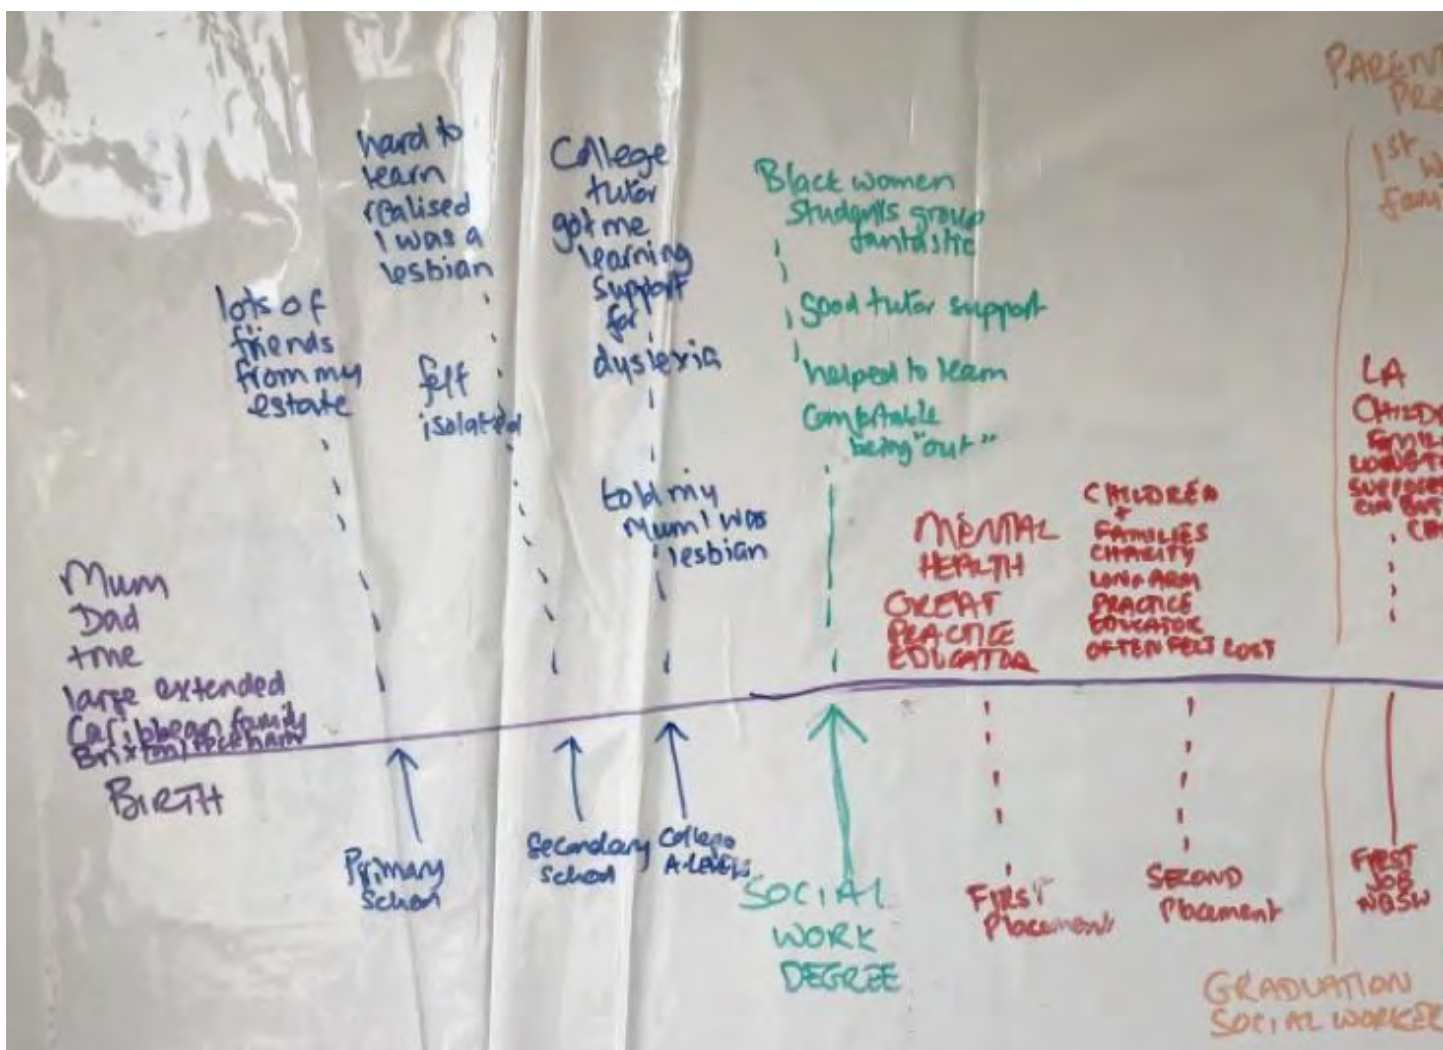 Mum
Dad
+me
large extended
Caribbean family
Brixton/Peckham
BIRTH
lots of
friends
from my
estate
Primary
School
hard to
learn
realised
I was a
lesbian
felt
isolated
Secondary
School
College
tutor
got me
learning
support
for
dyslexia
told my
Mum I was
lesbian
College
A-LEVELS
Black women
students group
fantastic
Good tutor support
helped to learn
Comfortable
being "out"
SOCIAL
WORK
DEGREE
MENTAL
HEALTH
GREAT
PRACTICE
EDUCATOR
FIRST
Placement
CHILDREN
+
FAMILIES
CHARITY
LONG ARM
PRACTICE
EDUCATOR
OFTEN FELT LOST
SECOND
Placement
PARENT
PR
1st W
fami
GRADUATION
SOCIAL WORKER
LA
CHILD
FAMIL
LONG T
SUPPOR
CIN BUT
FIRST
JOB
NQSW